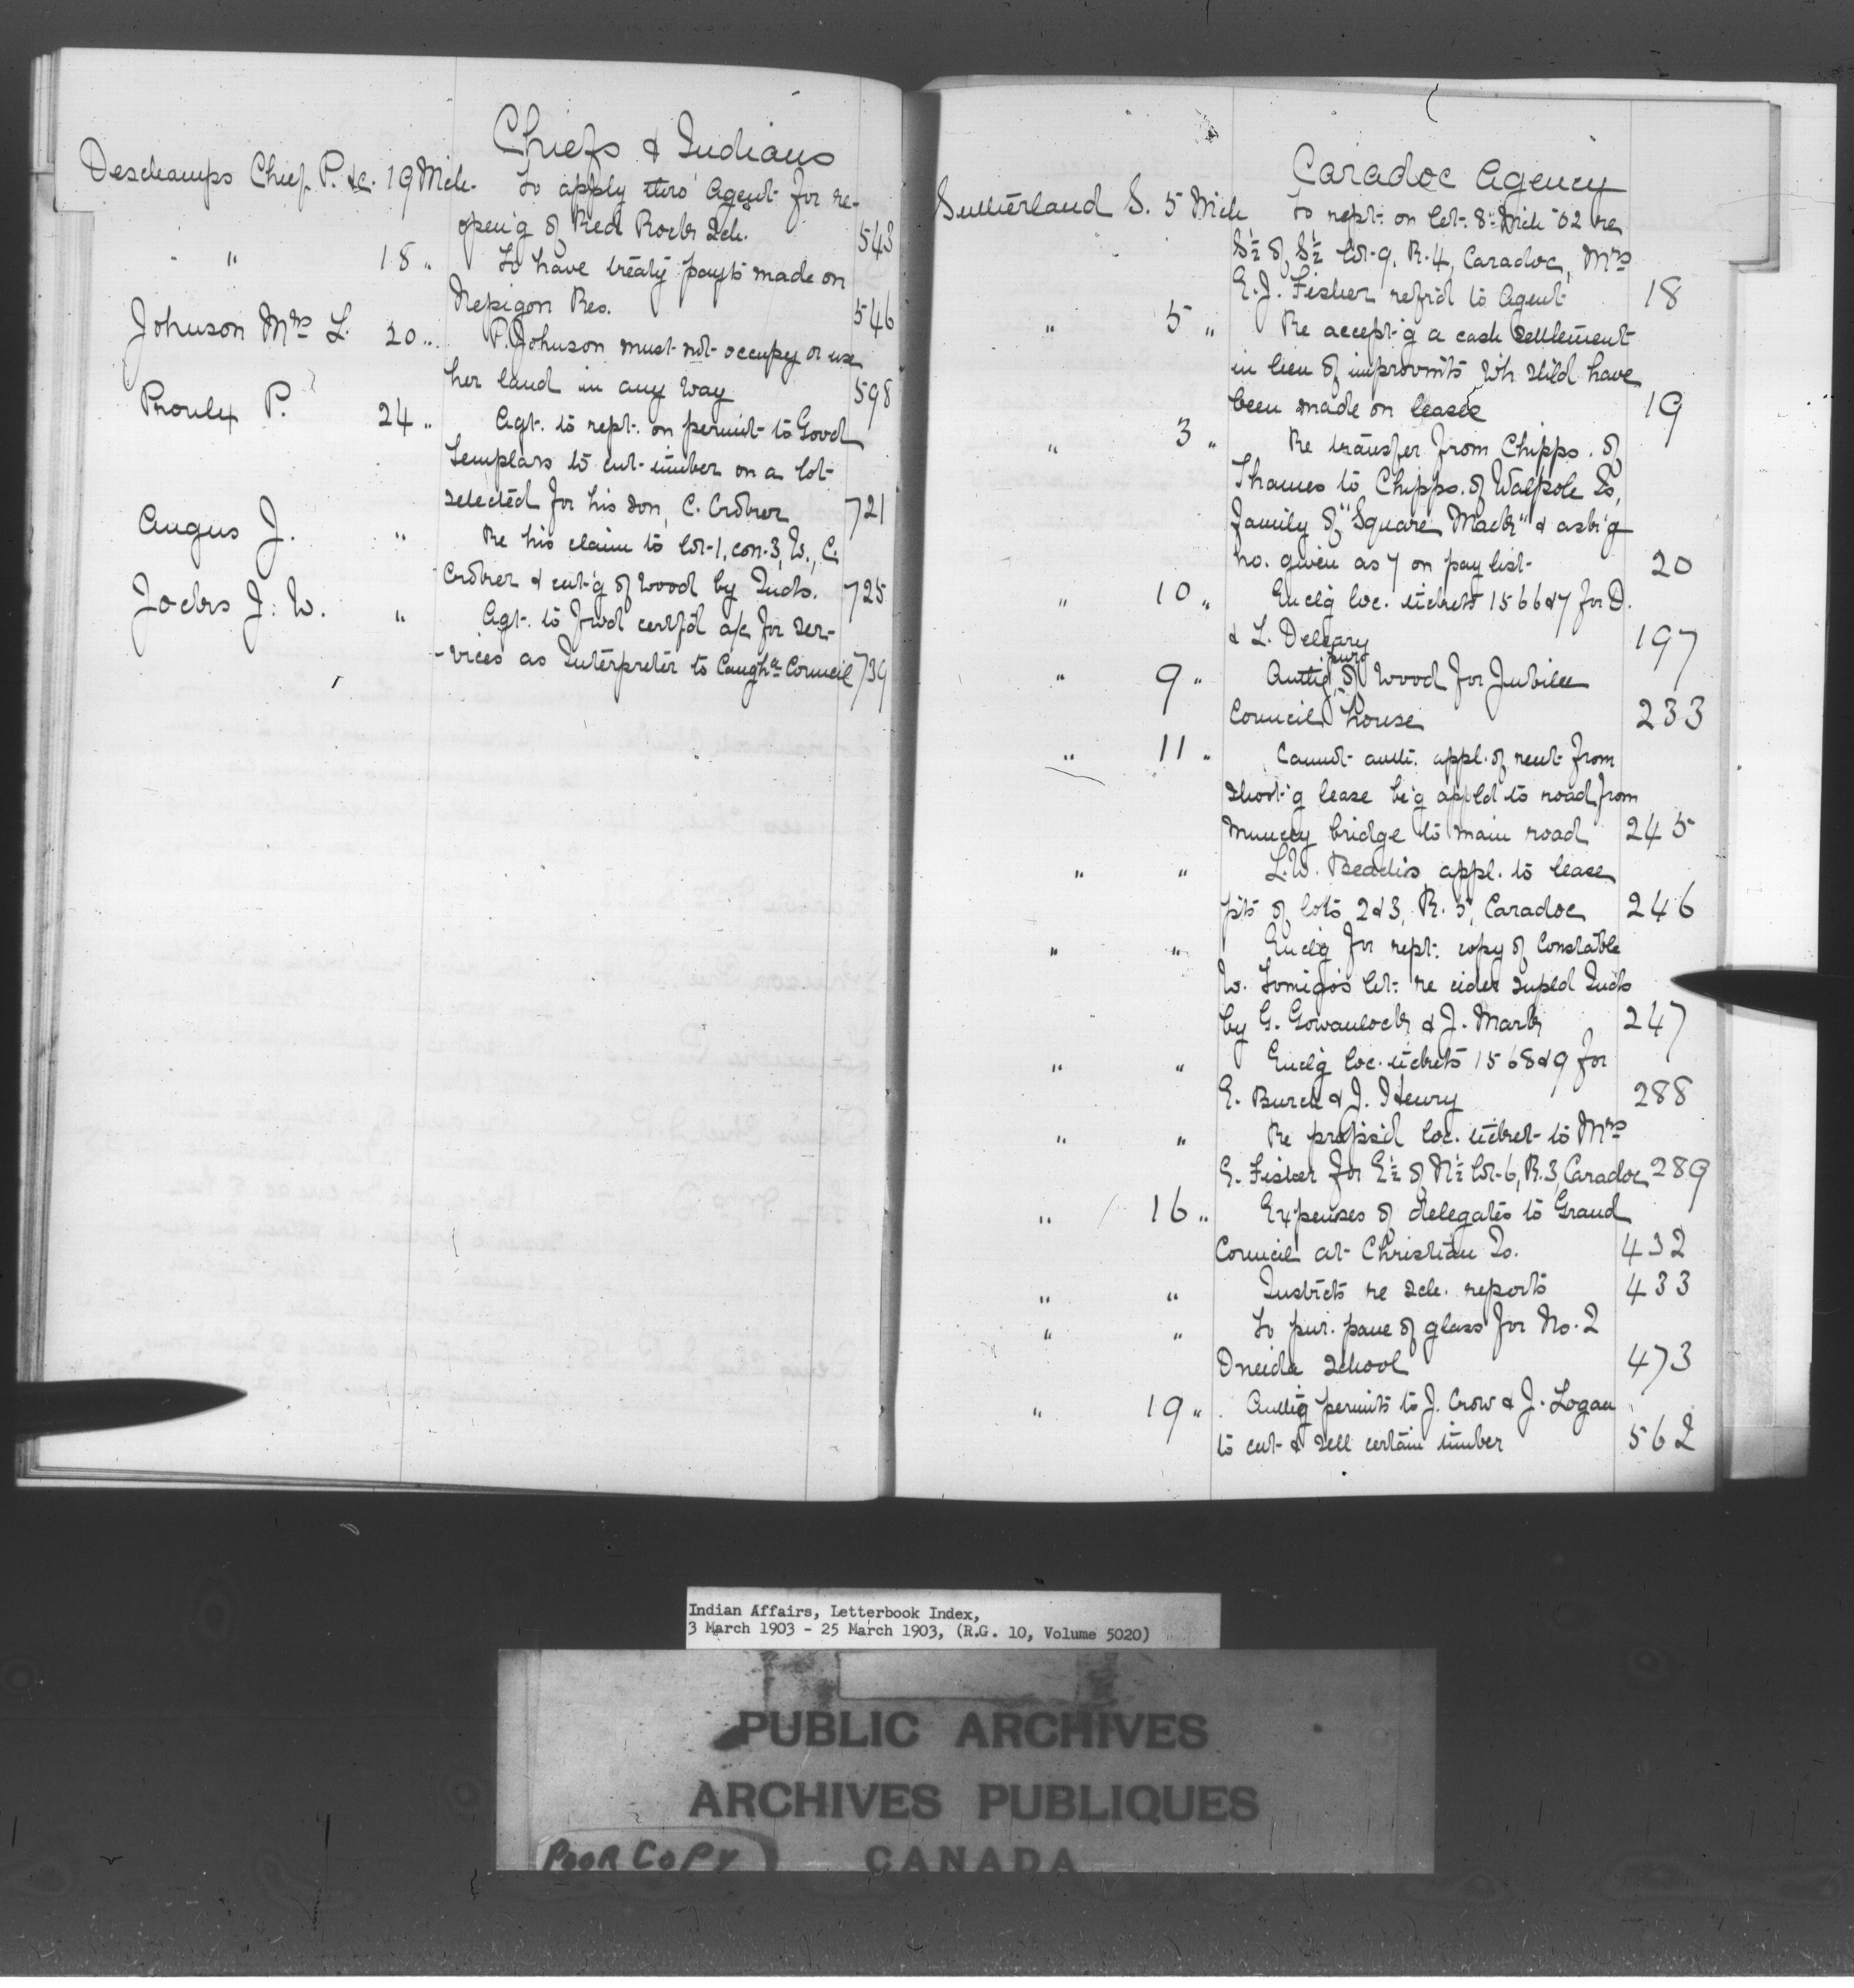 Chiefs & Indians
Deschamps Chief P. &c. 19 Mch. To apply thro' Agent for re-
open'g of Red Rock Sch. 543
" 18 " To have treaty payts made on
Nepigon Res. 546
Johnson Mrs L. 20 " P. Johnson must not occupy or use
her land in any way 598
Proulx P. 24 " Agt. to rept. on permit to Good
Templars to cut timber on a lot
selected for his son, C. Croker 721
Angus J. " Re his claim to lot 1, con. 3, W., C.
Croker & cut'g of wood by Inds. 725
Jocks J. W. " Agt. to fwd certf'd a/c for ser-
-vices as Interpreter to Caugha Council 739
Caradoc Agency
Sutherland S. 5 Mch To rept. on let. 8 Mch '02 re
S½ of S½ lot 9, R. 4, Caradoc, Mrs
E. J. Fisher refr'd to Agent 18
" 5 " Re accept'g a cash settlement
in lieu of improvmts wh shld have
been made on lease 19
" 3 " Re transfer from Chipps. of
Thames to Chipps. of Walpole Is,
family of "Square Mack" & ask'g
no. given as 7 on pay list 20
" 10 " Encl'g loc. tickets 1566&7 for D.
& L. Deleary 197
" 9 " Auth'g pur. of wood for Jubilee
Council house 233
" 11 " Cannot auth. appl. of rent from
shoot'g lease be'g appld to road from
Muncey bridge to main road 245
" " L. W. Beadis appl. to lease
pts of lots 2&3, R. 5, Caradoc 246
" " Encl'g for rept. copy of Constable
W. Tomigo's let. re cider supld Inds
by G. Gowanlock & J. Mark 247
" " Encl'g loc. tickets 1568&9 for
E. Burch & J. Henry 288
" " Re propos'd loc. ticket to Mrs
E. Fisher for E½ of N½ lot 6, R. 3, Caradoc 289
" 16 " Expenses of delegates to Grand
Council at Christian Is. 432
" " Instrcts re sch. reports 433
" " To pur. pane of glass for No. 2
Oneida School 473
" 19 " Auth'g permits to J. Crow & J. Logan
to cut & sell certain timber 562
Indian Affairs, Letterbook Index,
3 March 1903 - 25 March 1903, (R.G. 10, Volume 5020)
PUBLIC ARCHIVES
ARCHIVES PUBLIQUES
CANADA
POOR COPY